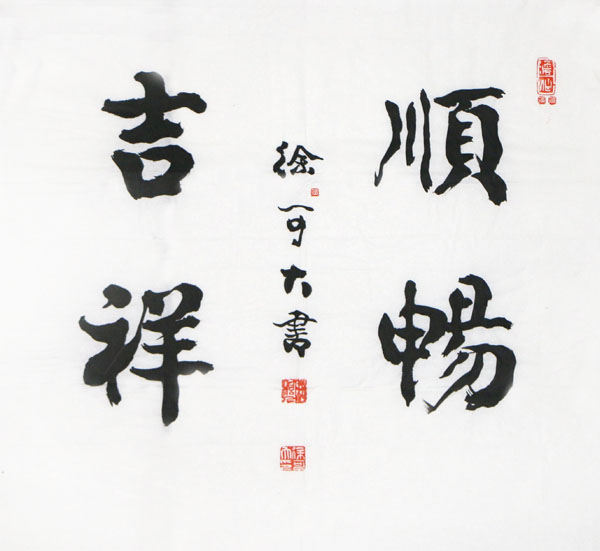 順暢
吉祥
徐可大書